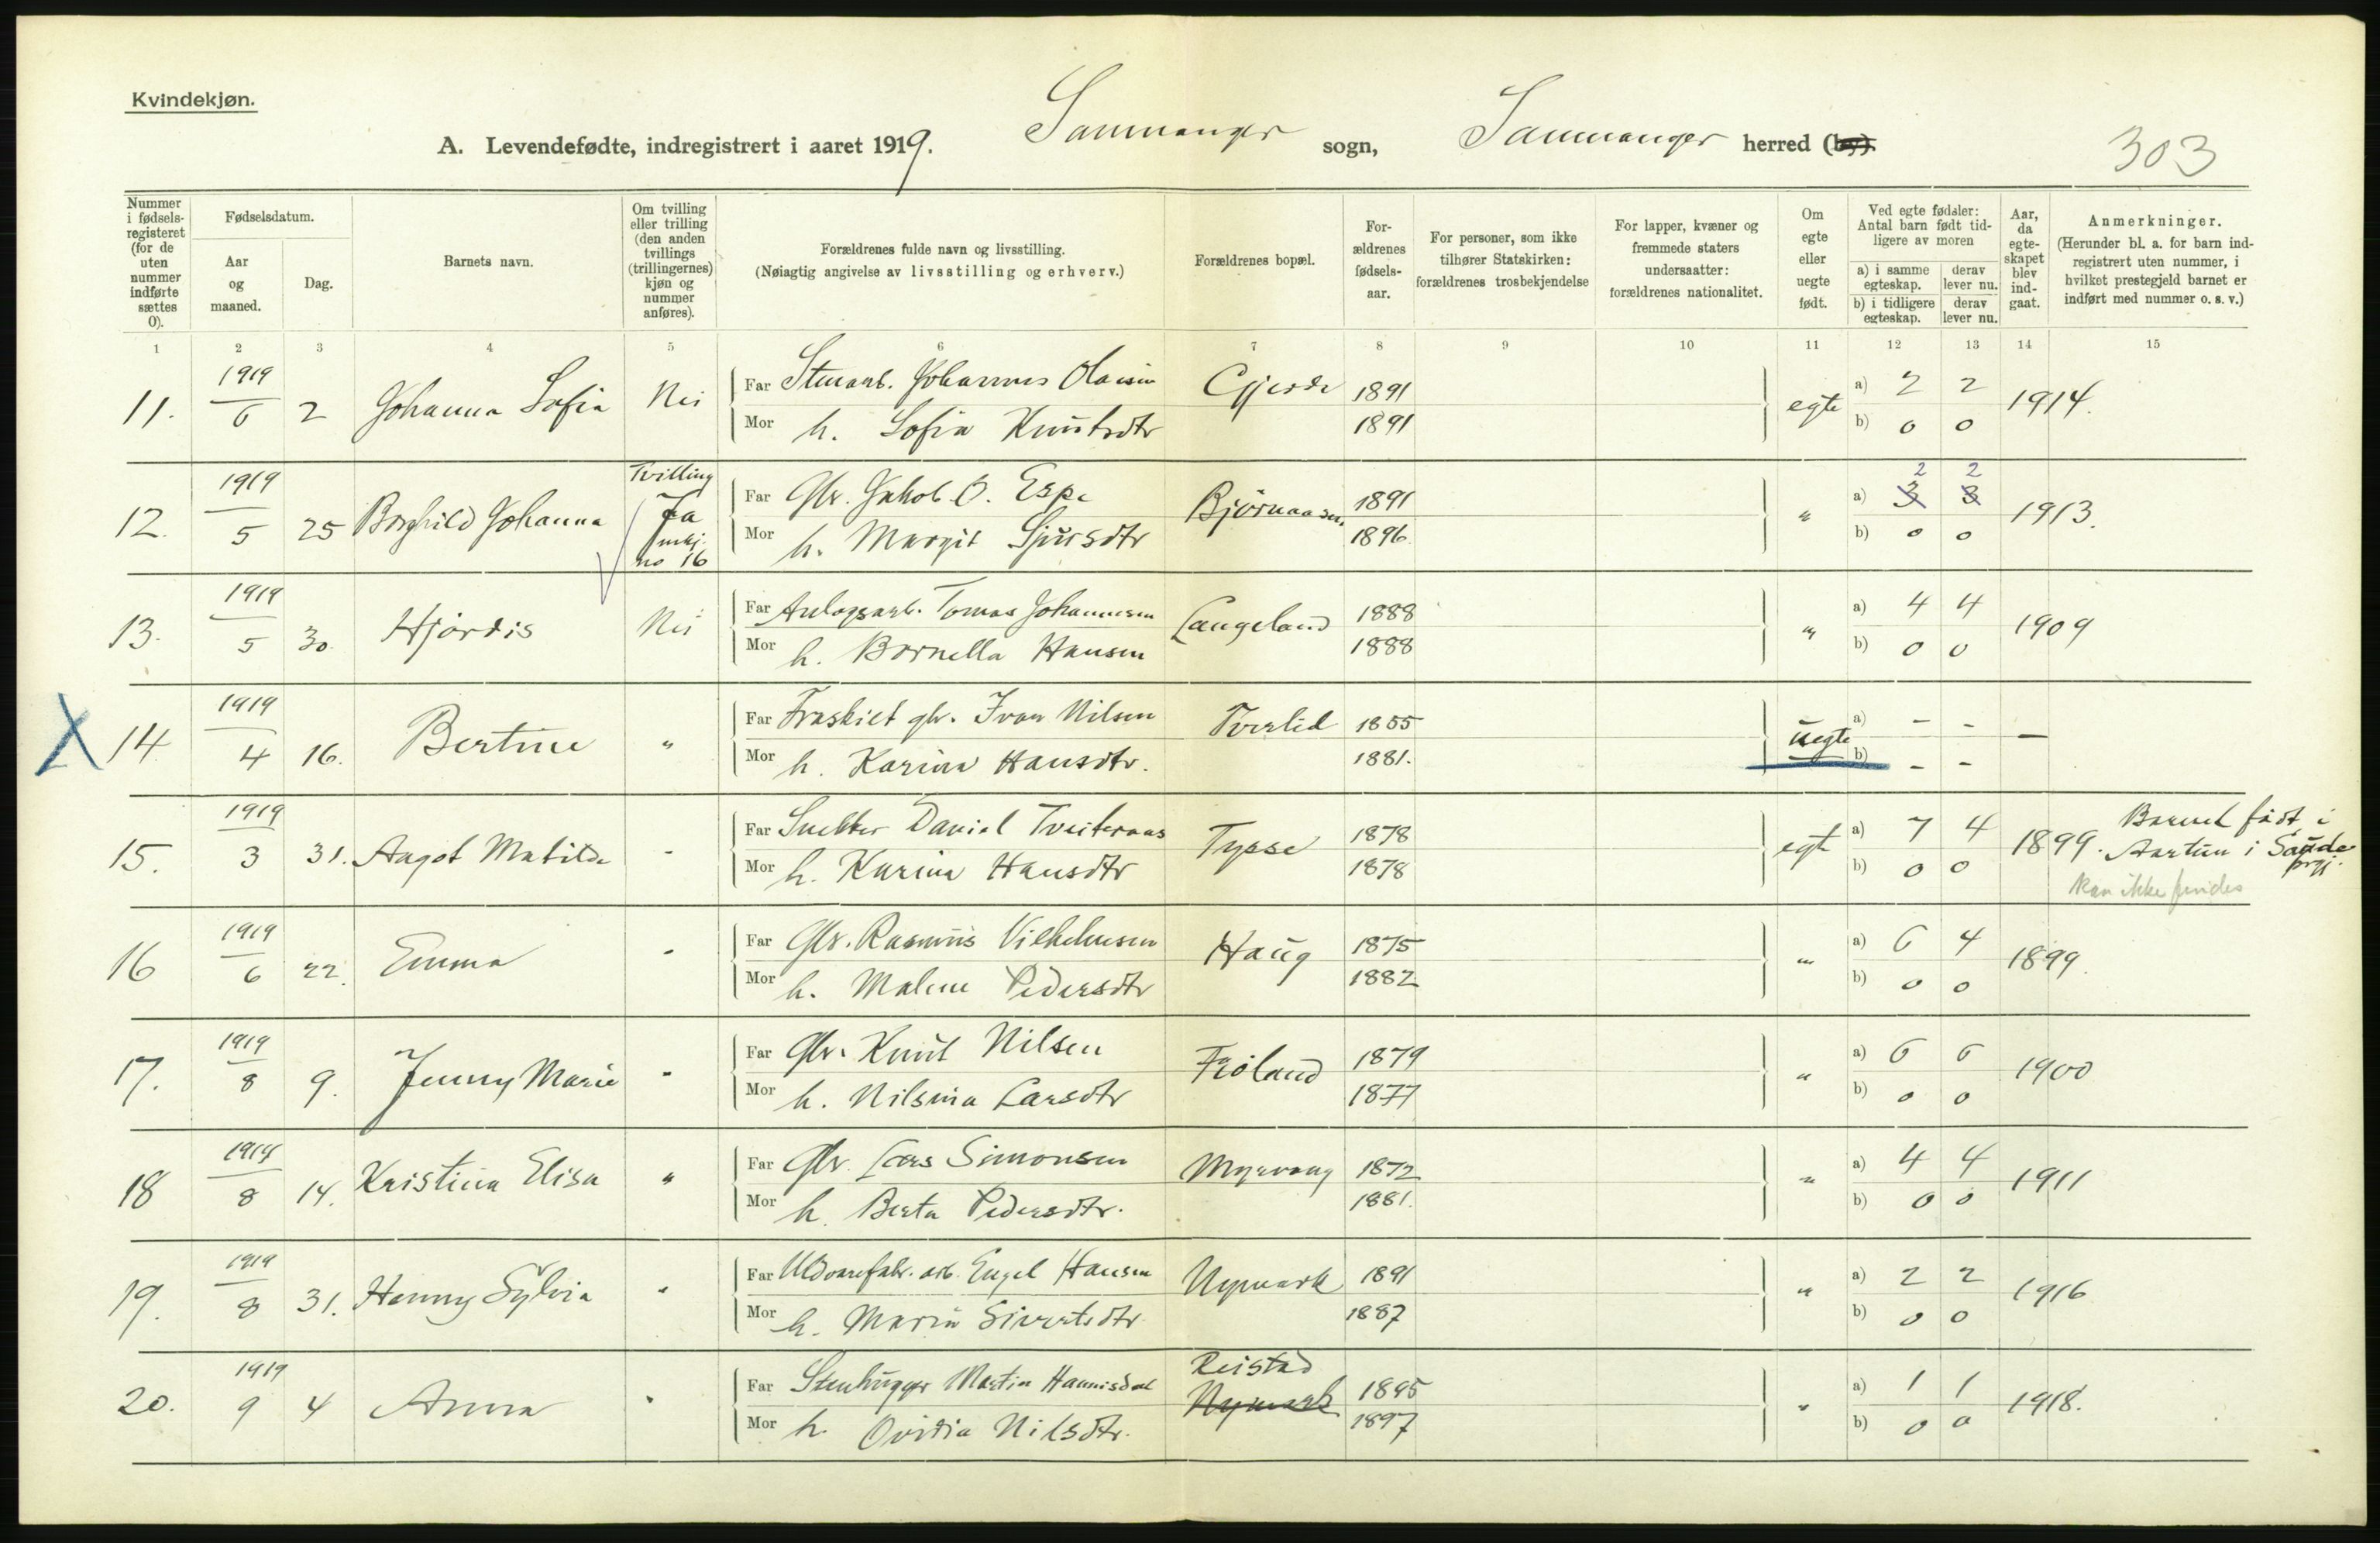 Kvindekjøn.
A. Levendefødte, indregistrert i aaret 1919. Samnanger sogn, Samnanger herred (by).
303
Nummer i fødsels-registeret (for de uten nummer indførte sættes 0).
Fødselsdatum.
Aar og maaned.
Dag.
Barnets navn.
Om tvilling eller trilling (den anden tvillings (trillingernes) kjøn og nummer anføres).
Forældrenes fulde navn og livsstilling.
(Nøiagtig angivelse av livsstilling og erhverv.)
Forældrenes bopæl.
For-ældrenes fødsels-aar.
For personer, som ikke tilhører Statskirken: forældrenes trosbekjendelse
For lapper, kvæner og fremmede staters undersaatter: forældrenes nationalitet.
Om egte eller uegte født.
Ved egte fødsler: Antal barn født tid-ligere av moren
a) i samme egteskap. derav lever nu.
b) i tidligere egteskap. derav lever nu.
Aar, da egte-skapet blev ind-gaat.
Anmerkninger.
(Herunder bl. a. for barn ind-registrert uten nummer, i hvilket prestegjeld barnet er indført med nummer o. s. v.)
1 2 3 4 5 6 7 8 9 10 11 12 13 14 15
11. 1919 6 2 Johanna Sofia Nei Far Stenarb. Johannes Olaisen Gjerde 1891 egte a) 2 2 1914.
Mor h. Sofia Knutsdtr 1891 b) 0 0
12. 1919 5 25 Borghild Johanna Tvilling Ja mkj. no 16 Far Gbr. Jakob O. Espe Bjørnaasen 1891 " a) 3 3 2 2 1913.
Mor h. Margit Sjursdtr 1896. b) 0 0
13. 1919 5 30 Hjørdis Nei Far Anlegsarb. Tomas Johannesen Langeland 1888 " a) 4 4 1909
Mor h. Bornella Hansen 1888 b) 0 0
X 14 1919 4 16. Bertine " Far Fraskilt gbr. Ivar Nilsen Tverlid 1855 uegte a) - - —
Mor h. Karina Hansdtr. 1881. b) - -
15. 1919 3 31. Aagot Matilde - Far Snekker Daniel Tveiteraas Tysse 1878 egte a) 7 4 1899. Barnet født i Aartun i Saude prgj.
Mor h. Karina Hansdtr 1878 b) 0 0 kan ikke findes
16 1919 6 22. Emma - Far Gbr. Rasmus Vilhelmsen Haug 1875 " a) 6 4 1899.
Mor h. Malene Pedersdtr 1882 b) 0 0
17. 1919 8 9. Jenny Marie " Far Gbr. Knut Nilsen Frøland 1879 " a) 6 6 1900
Mor h. Nilsina Larsdtr 1877 b) 0 0
18 1919 8 14. Kristina Elisa " Far Gbr. Lars Simonsen Myrvang 1872 " a) 4 4 1911
Mor h. Berta Pedersdtr. 1881. b) 0 0
19. 1919 8 31. Henny Sylvia " Far Uldvarefabr. arb. Engel Hansen Nymark 1891 " a) 2 2 1916
Mor h. Maria Sivertsdtr 1887 b) 0 0
20. 1919 9 4 Anna " Far Stenhugger Martin Hannisdal Reistad Nymark 1895 " a) 1 1 1918.
Mor h. Ovidia Nilsdtr. 1897 b) 0 0